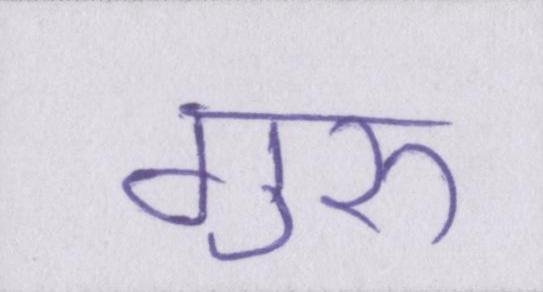 गुरु